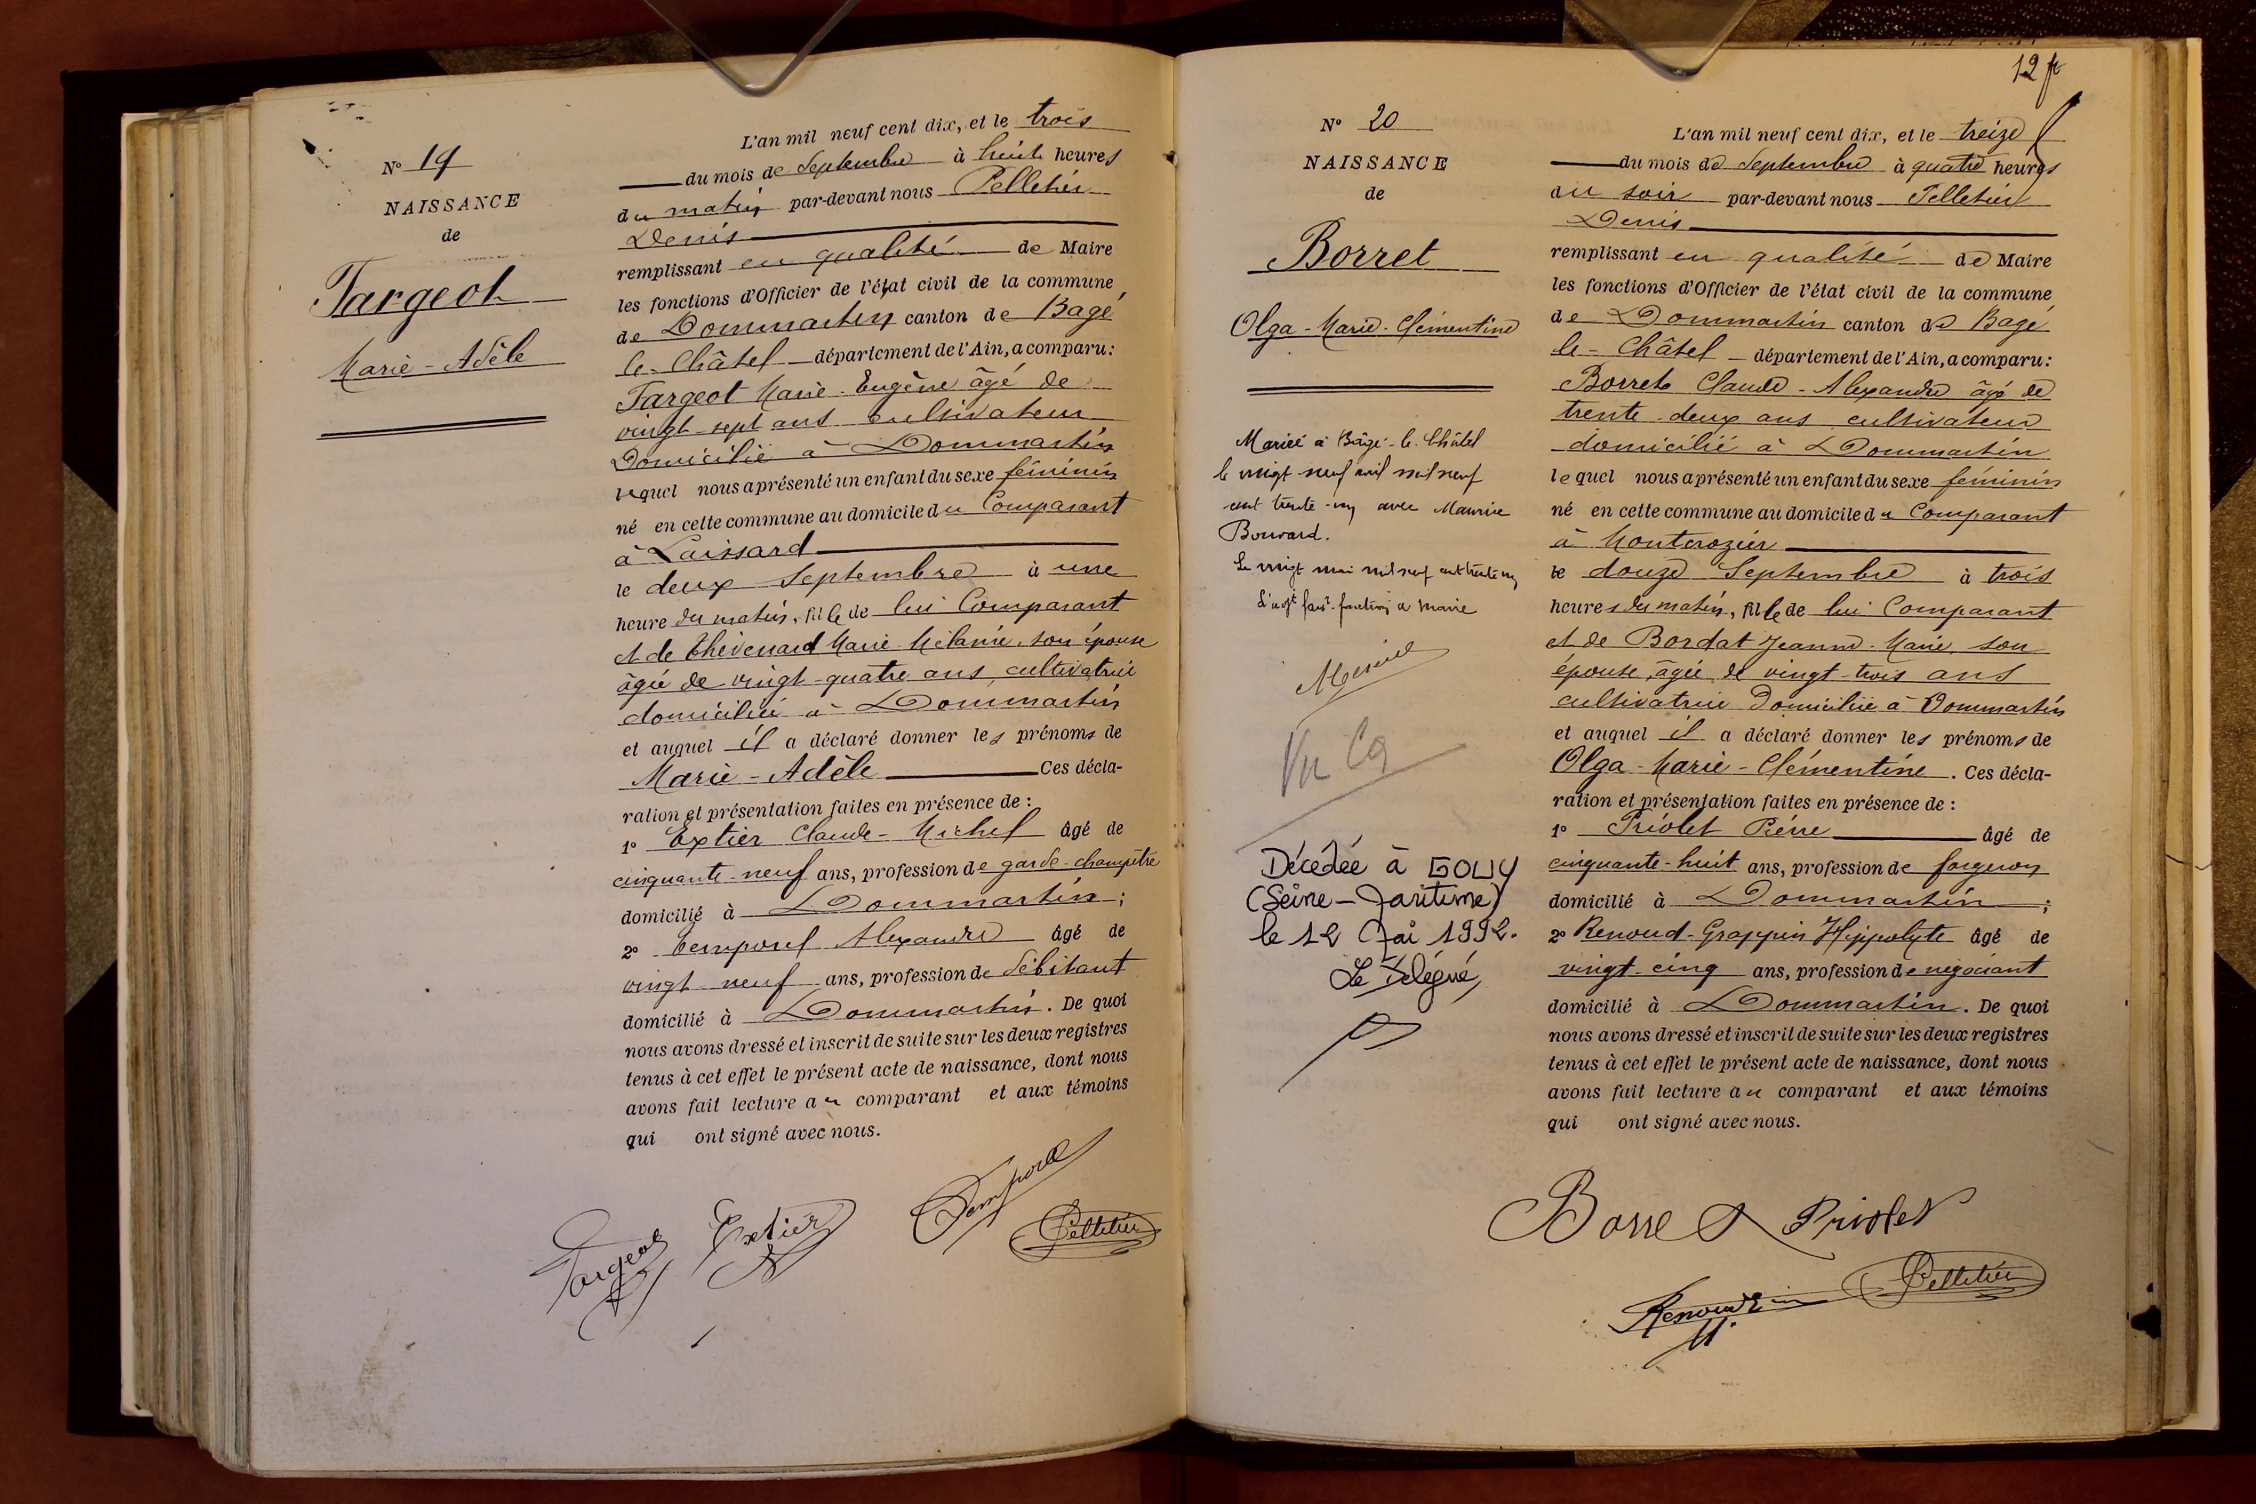 N° 19
NAISSANCE
de
Fargeot
Marie-Adèle
L'an mil neuf cent dix, et le trois
du mois de Septembre à huit heures
du matin par-devant nous Pelletier
Denis
remplissant en qualité de Maire
les fonctions d'Officier de l'état civil de la commune
de Dommartin canton de Bagé
le-Châtel département de l'Ain, a comparu:
Fargeot Marie-Eugène âgé de
vingt-sept ans cultivateur
Domicilié à Dommartin
lequel nous a présenté un enfant du sexe féminin
né en cette commune au domicile du Comparant
à Laissard
le deux Septembre à une
heure du matin, fille de lui Comparant
et de Thévenard Marie-Mélanie, son épouse
âgée de vingt-quatre ans, cultivatrice
domiciliée à Dommartin
et auquel il a déclaré donner les prénoms de
Marie-Adèle Ces décla-
ration et présentation faites en présence de :
1° Extier Claude-Michel âgé de
cinquante-neuf ans, profession de garde-champêtre
domicilié à Dommartin ;
2° Temporel Alexandre âgé de
vingt neuf ans, profession de débitant
domicilié à Dommartin. De quoi
nous avons dressé et inscrit de suite sur les deux registres
tenus à cet effet le présent acte de naissance, dont nous
avons fait lecture au comparant et aux témoins
qui ont signé avec nous.
Fargeot Extier Temporel
Pelletier
12
N° 20
NAISSANCE
de
Borret
Olga-Marie-Clémentine
Mariée à Bâgé-le-Châtel
le vingt-neuf avril mil neuf
cent trente-un avec Maurice
Bouvard.
Le vingt mai mil neuf cent trente un
Vu
Décédée à GOUY
(Seine-Maritime)
le 12 Mai 1992.
Le Délégué,
L'an mil neuf cent dix, et le treize
du mois de Septembre à quatre heures
du soir par-devant nous Pelletier
Denis
remplissant en qualité de Maire
les fonctions d'Officier de l'état civil de la commune
de Dommartin canton de Bagé
le-Châtel département de l'Ain, a comparu:
Borret Claude-Alexandre âgé de
trente-deux ans cultivateur
domicilié à Dommartin
lequel nous a présenté un enfant du sexe féminin
né en cette commune au domicile du Comparant
à Montcrozier
le douze Septembre à trois
heures du matin, fille de lui Comparant
et de Bordat Jeanne-Marie, son
épouse, âgée de vingt-trois ans
cultivatrice Domiciliée à Dommartin
et auquel il a déclaré donner les prénoms de
Olga-Marie-Clémentine. Ces décla-
ration et présentation faites en présence de :
1° Priolet Pierre âgé de
cinquante-huit ans, profession de forgeron
domicilié à Dommartin ;
2° Renoud-Grappin Hippolyte âgé de
vingt-cinq ans, profession de négociant
domicilié à Dommartin. De quoi
nous avons dressé et inscrit de suite sur les deux registres
tenus à cet effet le présent acte de naissance, dont nous
avons fait lecture au comparant et aux témoins
qui ont signé avec nous.
Borret Priolet
Pelletier